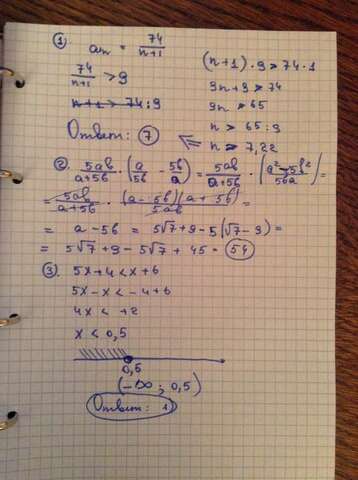 ① aₙ = 74/(n+1)
74/(n+1) > 9
n+1 > 74:9
(n+1)·9 > 74·1
9n+9 > 74
9n > 65
n > 65:9
n > 7,22
Ответ: 7
② 5ab/(a+5b) · (a/5b - 5b/a) = 5ab/(a+5b) · (a²-5b²/5ba) =
= 5ab/(a+5b) · (a-5b)(a+5b)/5ab =
= a - 5b = 5√7+9-5(√7-9) =
= 5√7+9-5√7+45 = 54
③ 5x+4 < x+6
5x-x < -4+6
4x < +2
x < 0,5
0,5
(-∞; 0,5)
Ответ: 1